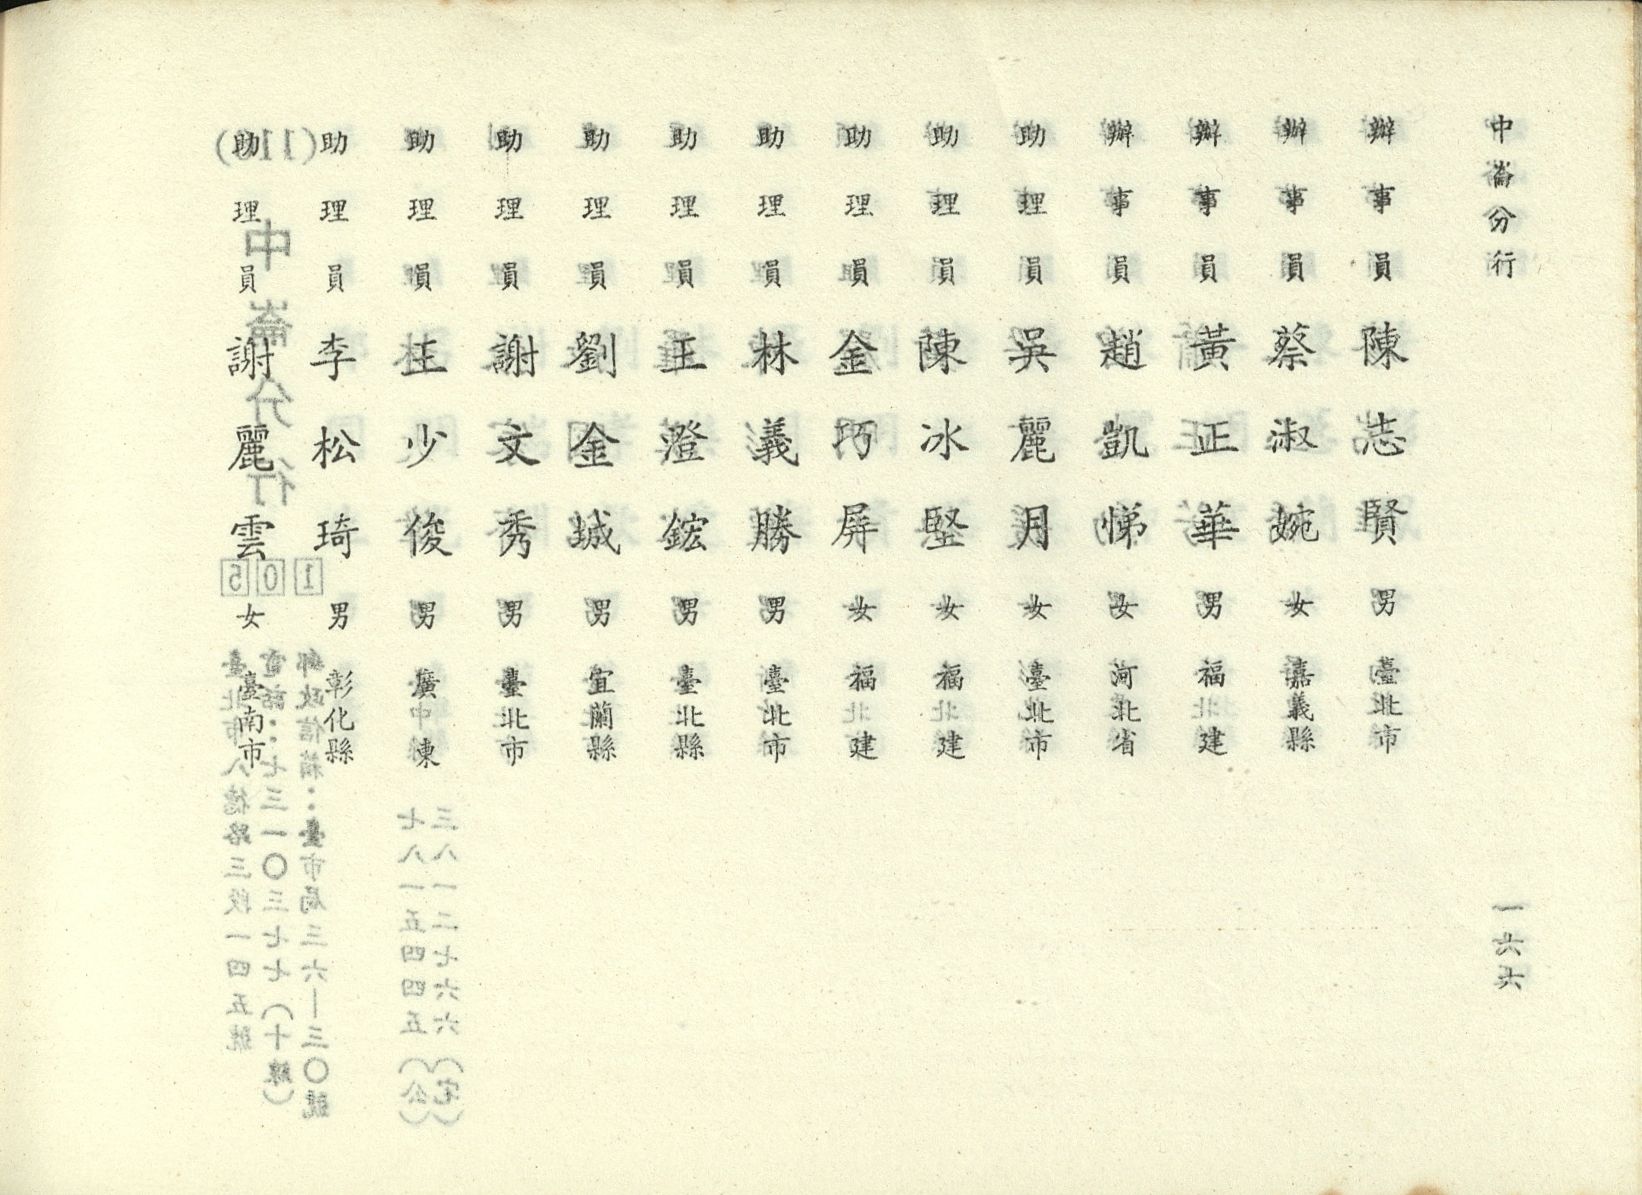 中崙分行
辦事員 陳志賢 男 臺北市
辦事員 蔡淑婉 女 嘉義縣
辦事員 黃正華 男 福建
辦事員 趙凱悌 女 河北省
助理員 吳麗月 女 臺北市
助理員 陳冰堅 女 福建
助理員 金巧屏 女 福建
助理員 林義勝 男 臺北市
助理員 王澄鋐 男 臺北縣
助理員 劉金城 男 宜蘭縣
助理員 謝文秀 男 臺北市
助理員 王少俊 男 廣東
助理員 李松琦 男 彰化縣
助理員 謝麗雲 女 臺南市
一六六
(111)
中崙分行
105
郵政信箱：臺市局三六—三〇號
電話：七三一〇三七七（十線）
臺北市八德路三段一四五號
三八一二七六六（宅）
七八一五四四五（公）